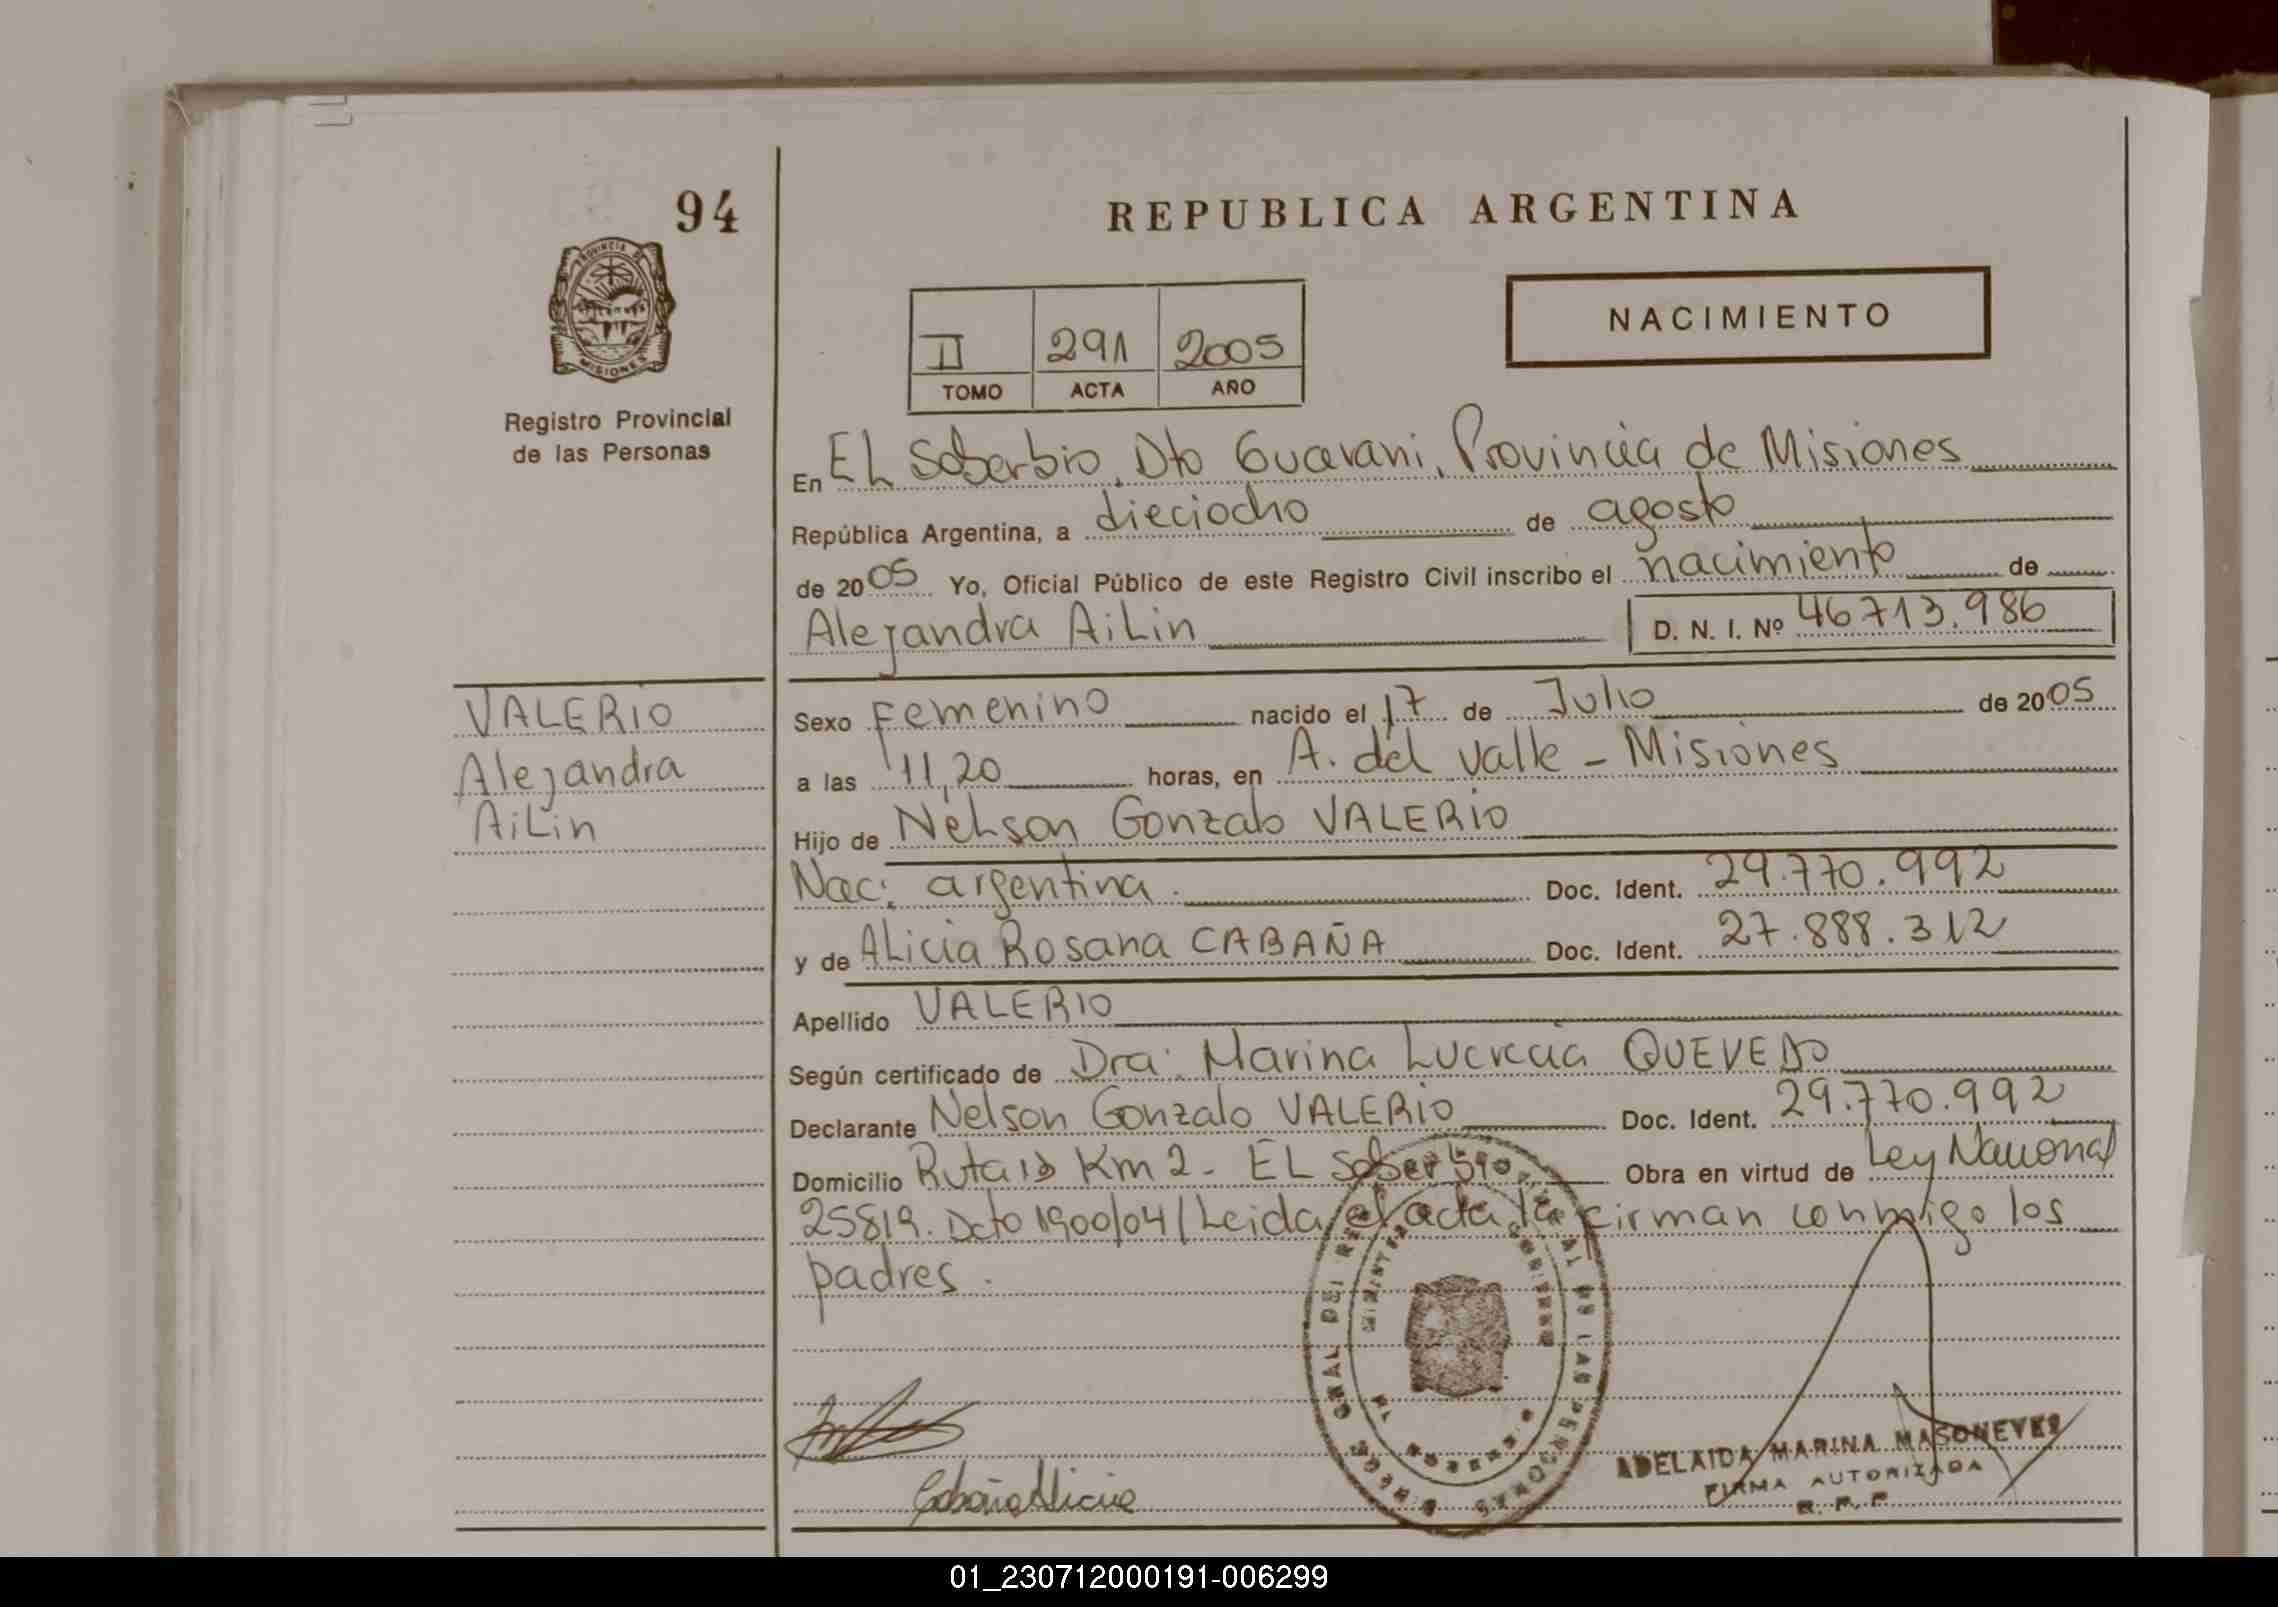 94
REPUBLICA ARGENTINA
PROVINCIA DE
MISIONES
Registro Provincial
de las Personas
II 291 2005
TOMO ACTA AÑO
NACIMIENTO
En EL Soberbio, Dto Guarani, Provincia de Misiones
República Argentina, a dieciocho de agosto
de 2005 Yo, Oficial Público de este Registro Civil inscribo el nacimiento de
Alejandra AiLin D. N. I. Nº 46713.986
VALERIO
Alejandra
AiLin
Sexo Femenino nacido el 17 de Julio de 2005
a las 11,20 horas, en A. del Valle - Misiones
Hijo de NeLson Gonzalo VALERIO
Nac: argentina. Doc. Ident. 29.770.992
y de ALicia Rosana CABAÑA Doc. Ident. 27.888.312
Apellido VALERIO
Según certificado de Dra. Marina Lucrecia QUEVEDO
Declarante Nelson Gonzalo VALERIO Doc. Ident. 29.770.992
Domicilio Ruta Km 2 - EL Soberbio Obra en virtud de Ley Nacional
25819. Dcto 1900/04 / Leida el acta la firman conmigo los
padres.
Cabaña Alicia
ADELAIDA MARINA MASONEVES
FIRMA AUTORIZADA
R. P. P.
01_230712000191-006299